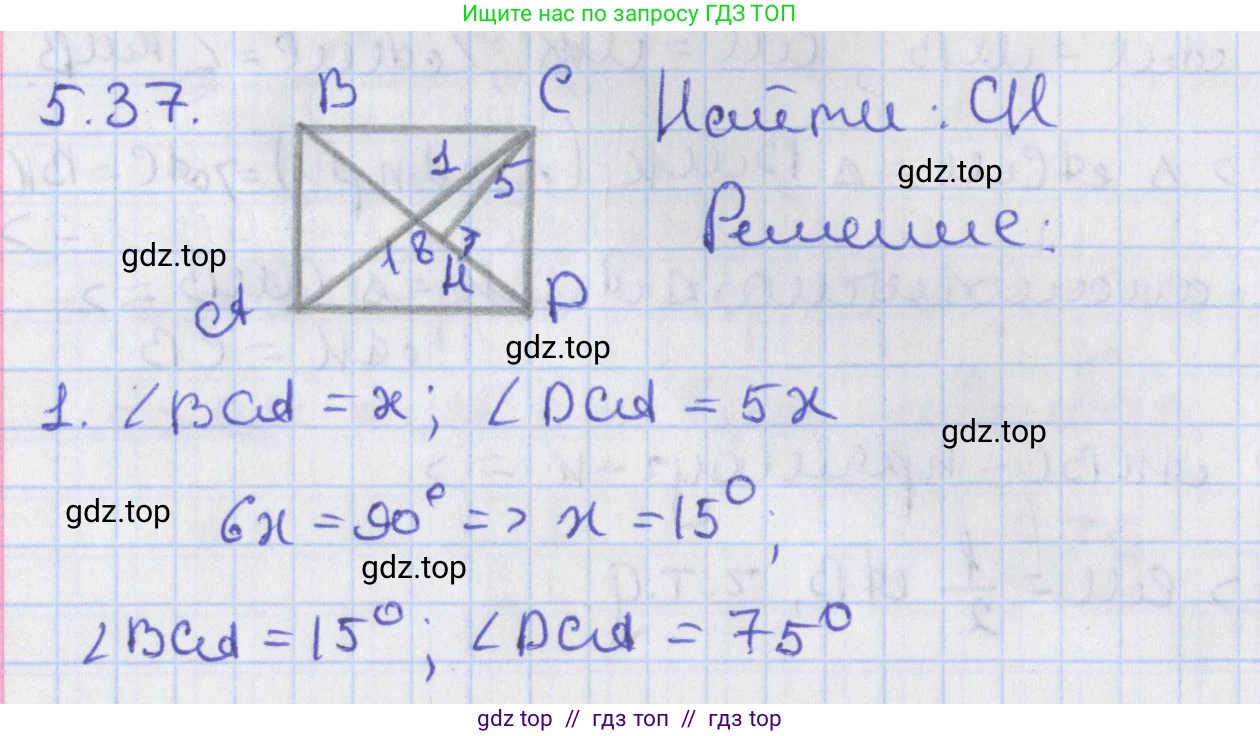 Ищите нас по запросу ГДЗ ТОП
5.37.
B
C
Найти: CH
gdz.top
1
5
Решение:
gdz.top
1
8
7
H
A
D
gdz.top
1. ∠BCA = x; ∠DCA = 5x
gdz.top
gdz.top
6x = 90° => x = 15°;
gdz.top
∠BCA = 15°; ∠DCA = 75°
gdz top // гдз топ // gdz top